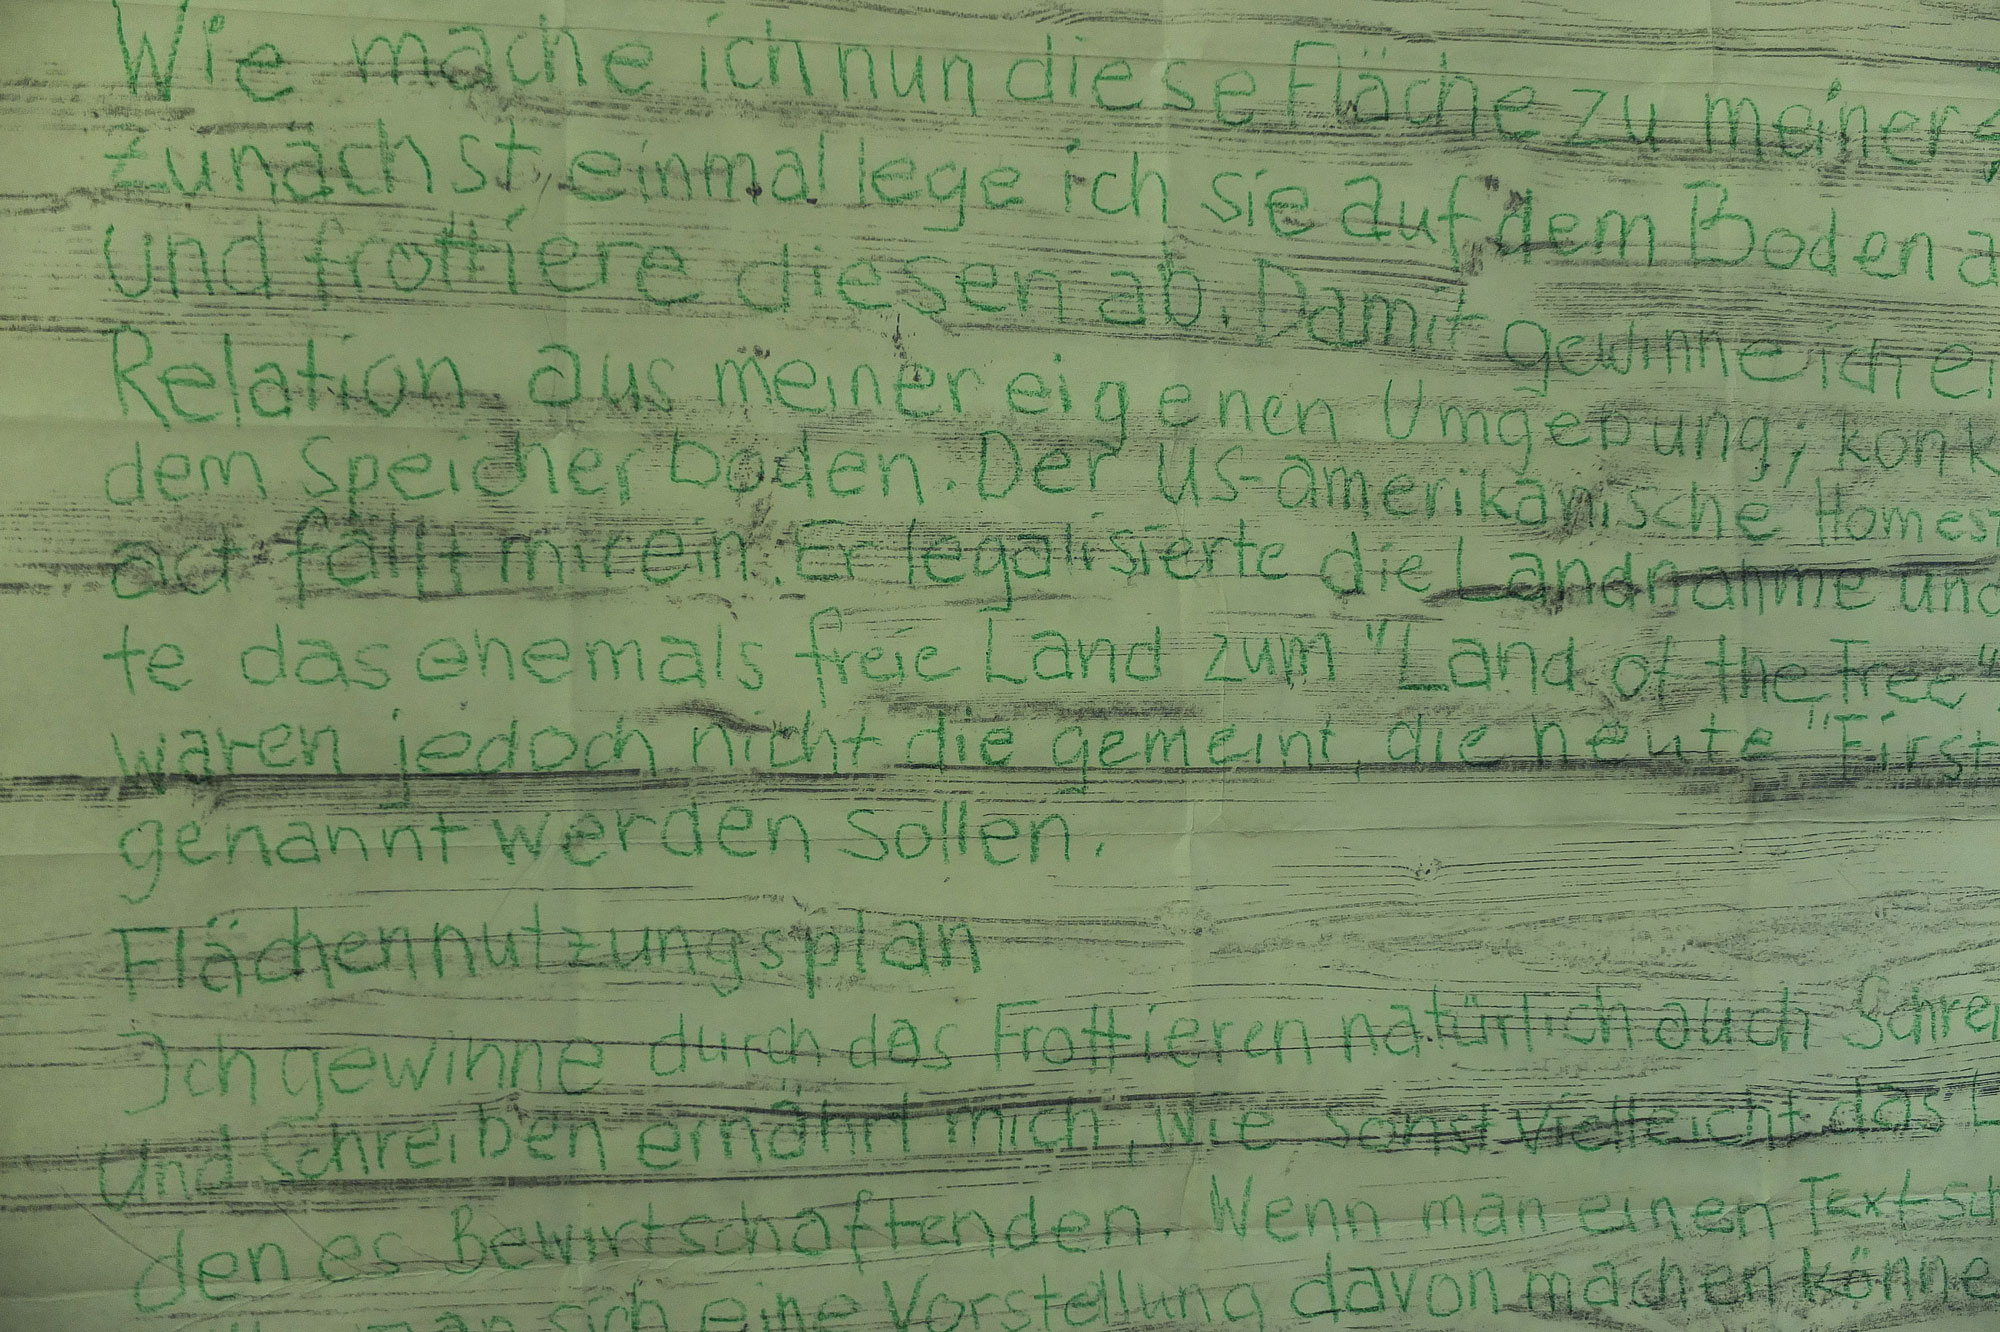 Wie mache ich nun diese Fläche zu meiner
Zunächst einmal lege ich sie auf dem Boden a
und frottiere diesen ab. Damit gewinne ich ei
Relation aus meiner eigenen Umgebung; konk
dem Speicherboden. Der US-amerikanische Homest
act fällt mir ein. Er legalisierte die Landnahme und
te das ehemals freie Land zum "Land of the Free",
waren jedoch nicht die gemeint, die heute "First
genannt werden sollen.
Flächennutzungsplan
Ich gewinne durch das Frottieren natürlich auch Schrei
und Schreiben ernährt mich, wie sonst vielleicht das L
den es Bewirtschaftenden. Wenn man einen Text sch
man sich eine Vorstellung davon machen könne